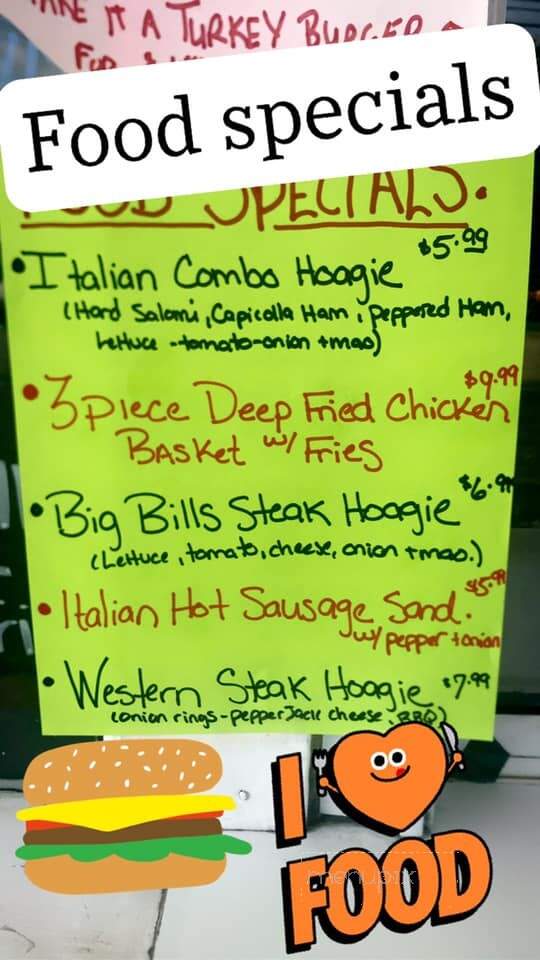 IT A TURKEY BURGER
FOR
Food specials
FOOD SPECIALS.
• Italian Combo Hoagie $5.99
(Hard Salami, Capicolla Ham, Peppered Ham,
Lettuce -tomato-onion + mao)
• 3 Piece Deep Fried Chicken $9.99
Basket w/ Fries
• Big Bills Steak Hoagie $6.99
(Lettuce, tomato, cheese, onion + mao.)
• Italian Hot Sausage Sand. $5.99
w/ pepper + onion
• Western Steak Hoagie $7.99
(onion rings - pepper Jack cheese, BBQ)
I
FOOD
menupix